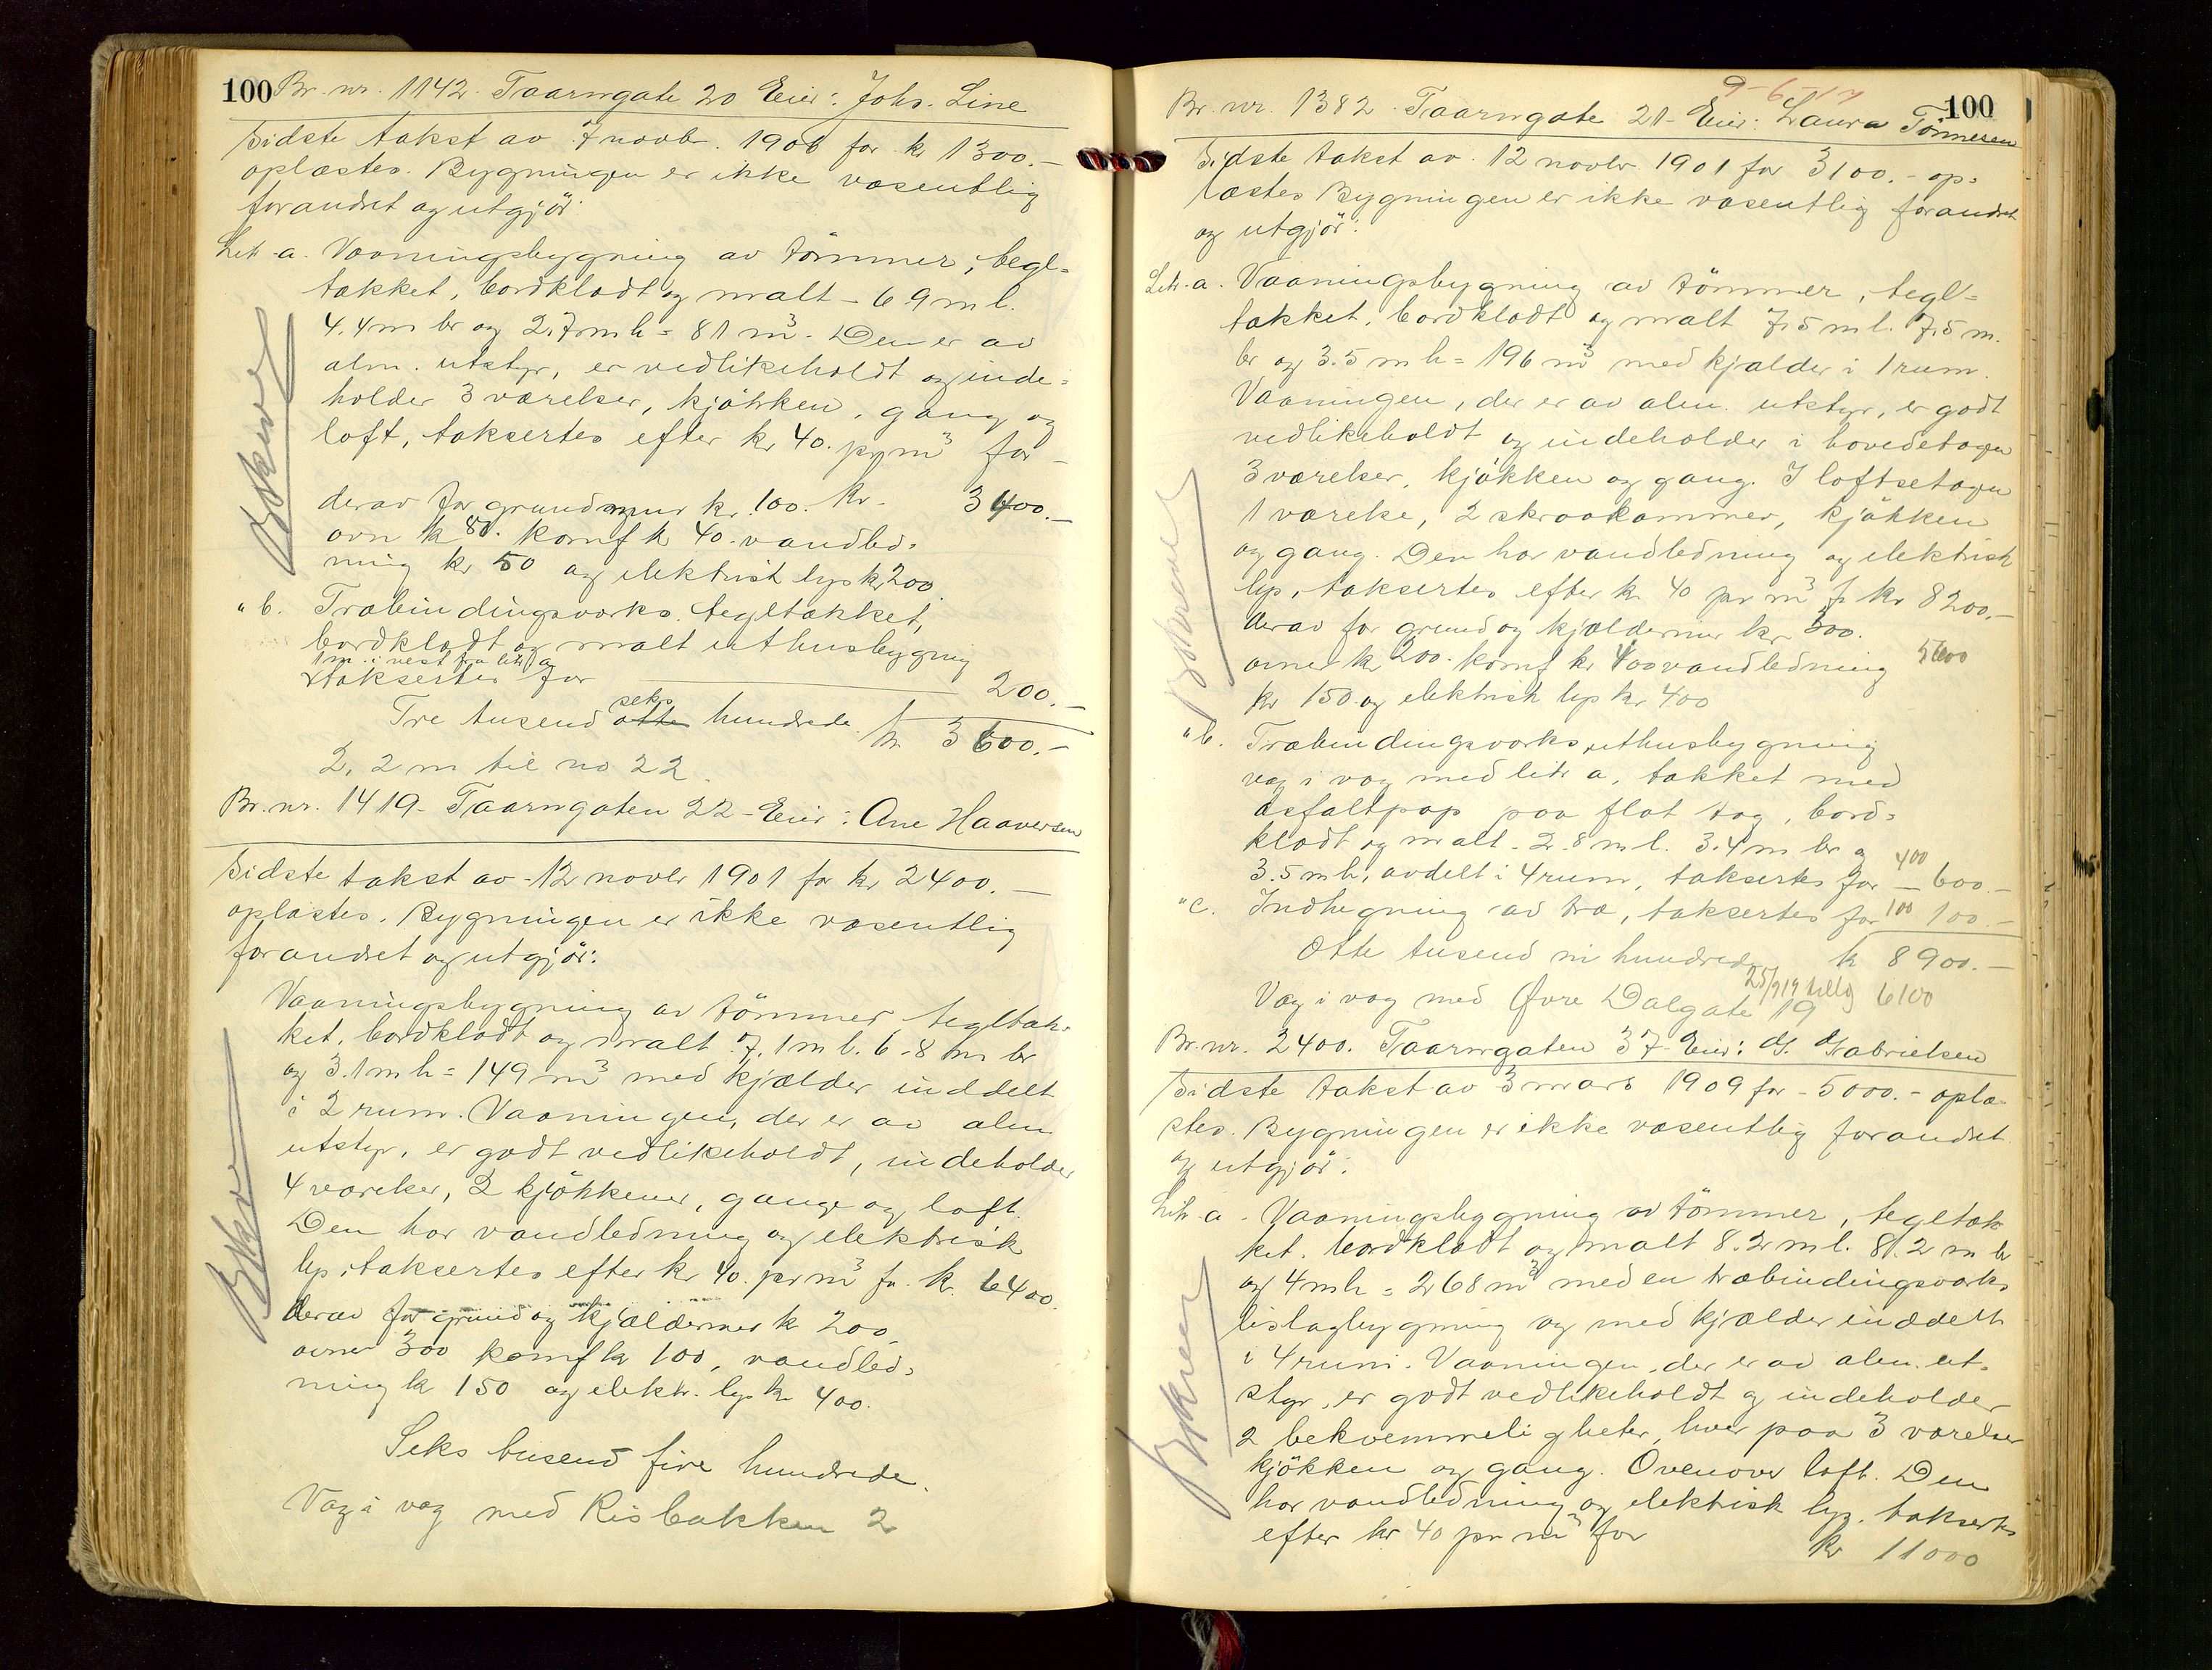 100 Br. nr. 1142. Taarngate 20 Eier: Johs. Line
Sidste takst av 7 novb. 1906 for kr 1300.-
oplæstes. Bygningen er ikke væsentlig
forandret og utgjør:
Litr. a. Vaaningsbygning av tømmer, tegl=
takket, bordklædt og malt - 6 9 m l.
4.4 m br og 2.7 m h = 81 m³. Den er av
alm. utstyr, er vedlikeholdt og inde=
holder 3 værelser, kjøkken, gang og
loft, taksertes efter kr 40. pr m³ for -
derav for grundmur kr. 100. kr. 3400.-
ovn kr 80. komf kr 40. vandled=
ning kr 50 og elektrisk lys kr 200.
" b. Træbindingsverks. tegltækket,
bordklædt og malt uthusbygning
1 m. i vest fra litr a
taksertes for 200.-
seks
Tre tusend otte hundrede. kr 3600.-
2,2 m til no 22.
Bokserer
Br. nr. 1419 - Taarngaten 22 - Eier: Ane Haaversen
Sidste takst av 12 novbr 1901 for kr 2400.-
oplæstes. Bygningen er ikke væsentlig
forandret og utgjør:
Vaaningsbygning av tømmer, tegltæk=
ket, bordklædt og malt 7.1 m l. 6.8 m br
og 3.1 m h = 149 m³ med kjælder inddelt
i 2 rum. Vaaningen, der er av alm
utstyr, er godt vedlikeholdt, indeholder
4 værelser, 2 kjøkkener, gange og loft.
Den har vandledning og elektrisk
lys, taksertes efter kr 40. pr m³ for kr. 6400.
derav for grund og kjældermur kr 200,
ovner 300 komf kr 100, vandled=
ning kr 150 og elektr. lys kr 400.
Seks tusend fire hundrede.
Væg i væg med Risbakken 2
9-6-17
100
Br. nr. 1382. Taarngate 21 - Eier: Laura Tønnesen
Sidste takst av. 12 novbr. 1901 for 3100.- op=
læstes Bygningen er ikke væsentlig forandret
og utgjør:
Litr. a. Vaaningsbygning av tømmer, tegl=
takket, bordklædt og malt 7.5 m l. 7.5 m.
br og 3.5 m h = 196 m³ med kjælder i 1 rum.
Vaaningen, der er av alm. utstyr, er godt
vedlikeholdt og indeholder i hovedetagen
3 værelser, kjøkken og gang. I loftsetagen
1 værelse, 2 skraakammer, kjøkken
og gang. Den har vandledning og elektrisk
lys, taksertes efter kr 40 pr m³ fr kr 8200.-
derav for grund og kjældermur kr 300.
ovner kr 200. komf kr 100 vandledning 5600
kr 150 og elektrisk lys kr 400
" b. Træbindingsverks uthusbygning
væg i væg med litr a, takket med
asfaltpap paa flat tag, bord=
klædt og malt. 2.8 m l. 3.4 m br og
400
3.5 m h, avdelt i 4 rum, taksertes for - 600.-
" c. Indhegning av træ, taksertes for 100 100.-
Otte tusend ni hundrede kr 8900.-
25/9 19 6100
Væg i væg med Øvre Dalgate 19
Br. nr. 2400. Taarngaten 37 - Eier: G. Gabrielsen
Sidste takst av 3 mars 1909 for - 5000.- oplæ=
stes. Bygningen er ikke væsentlig forandret
og utgjør:
Litr. a. Vaaningsbygning av tømmer, tegltæk
ket, bordklædt og malt 8.2 m l. 8.2 m br
og 4 m h = 268 m³ med en træbindingsverks
bislagbygning og med kjælder inddelt
i 4 rum. Vaaningen, der er av alm. ut=
styr, er godt vedlikeholdt og indeholder
2 bekvemmeligheter, hver paa 3 værelser
kjøkken og gang. Ovenover loft. Den
har vandledning og elektrisk lys. taksertes
efter kr 40 pr m³ for kr 11000